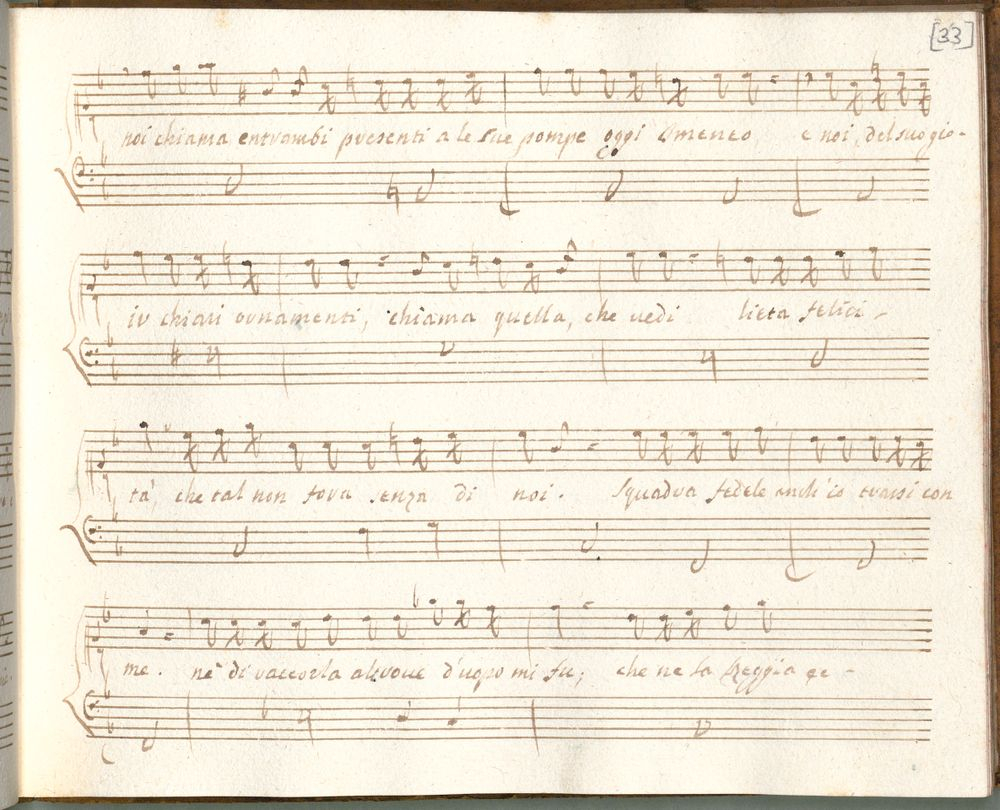 [33]
noi chiama entrambi presenti a le sue pompe oggi Imeneo, e noi, del suo gio-
ir chiari ornamenti, chiama quella, che vedi lieta felici-
tà, che tal non fora senza di noi. Squadra fedele anch'io trassi con
me. nè di raccorla altrove d'uopo mi fu; che ne la Reggia ge-